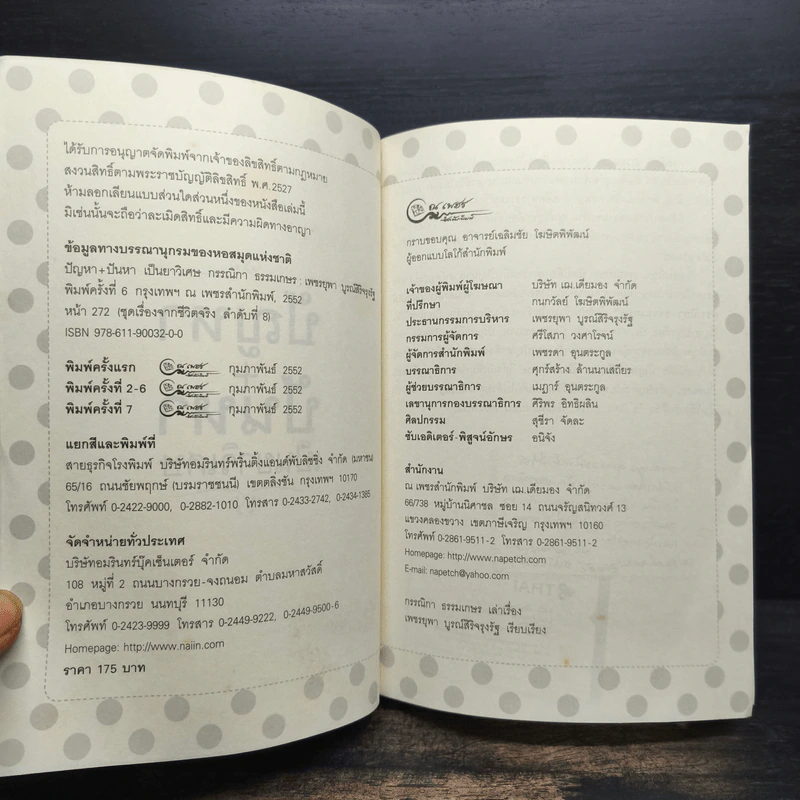 ได้รับการอนุญาตจัดพิมพ์จากเจ้าของลิขสิทธิ์ตามกฎหมาย
สงวนสิทธิ์ตามพระราชบัญญัติลิขสิทธิ์ พ.ศ.2527
ห้ามลอกเลียนแบบส่วนใดส่วนหนึ่งของหนังสือเล่มนี้
มิเช่นนั้นจะถือว่าละเมิดสิทธิ์และมีความผิดทางอาญา
ข้อมูลทางบรรณานุกรมของหอสมุดแห่งชาติ
ปัญหา+ปันหา เป็นยาวิเศษ กรรณิกา ธรรมเกษร : เพชรยุพา บูรณ์สิริจรุงรัฐ
พิมพ์ครั้งที่ 6 กรุงเทพฯ ณ เพชรสำนักพิมพ์, 2552
หน้า 272 (ชุดเรื่องจากชีวิตจริง ลำดับที่ 8)
ISBN 978-611-90032-0-0
พิมพ์ครั้งแรก ณ เพชร กุมภาพันธ์ 2552
พิมพ์ครั้งที่ 2-6 ณ เพชร กุมภาพันธ์ 2552
พิมพ์ครั้งที่ 7 ณ เพชร กุมภาพันธ์ 2552
แยกสีและพิมพ์ที่
สายธุรกิจโรงพิมพ์ บริษัทอมรินทร์พริ้นติ้งแอนด์พับลิชชิ่ง จำกัด (มหาชน)
65/16 ถนนชัยพฤกษ์ (บรมราชชนนี) เขตตลิ่งชัน กรุงเทพฯ 10170
โทรศัพท์ 0-2422-9000, 0-2882-1010 โทรสาร 0-2433-2742, 0-2434-1385
จัดจำหน่ายทั่วประเทศ
บริษัทอมรินทร์บุ๊คเซ็นเตอร์ จำกัด
108 หมู่ที่ 2 ถนนบางกรวย-จงถนอม ตำบลมหาสวัสดิ์
อำเภอบางกรวย นนทบุรี 11130
โทรศัพท์ 0-2423-9999 โทรสาร 0-2449-9222, 0-2449-9500-6
Homepage: http://www.naiin.com
ราคา 175 บาท
ณ เพชร
กราบขอบคุณ อาจารย์เฉลิมชัย โฆษิตพิพัฒน์
ผู้ออกแบบโลโก้สำนักพิมพ์
เจ้าของผู้พิมพ์ผู้โฆษณา บริษัท เฌ.เดียมอง จำกัด
ที่ปรึกษา กนกวัลย์ โฆษิตพิพัฒน์
ประธานกรรมการบริหาร เพชรยุพา บูรณ์สิริจรุงรัฐ
กรรมการผู้จัดการ ศรีโสภา วงศาโรจน์
ผู้จัดการสำนักพิมพ์ เพชรดา อุนตระกูล
บรรณาธิการ ศุภร์สร้าง ล้านนาเสถียร
ผู้ช่วยบรรณาธิการ เมฎาร์ อุนตระกูล
เลขานุการกองบรรณาธิการ ศิริพร อิทธิผลิน
ศิลปกรรม สุชีรา จัดละ
ซับเอดิเตอร์-พิสูจน์อักษร อนิจัง
สำนักงาน
ณ เพชรสำนักพิมพ์ บริษัท เฌ.เดียมอง จำกัด
66/738 หมู่บ้านนิศาชล ซอย 14 ถนนจรัญสนิทวงศ์ 13
แขวงคลองขวาง เขตภาษีเจริญ กรุงเทพฯ 10160
โทรศัพท์ 0-2861-9511-2 โทรสาร 0-2861-9511-2
Homepage: http://www.napetch.com
E-mail: napetch@yahoo.com
กรรณิกา ธรรมเกษร เล่าเรื่อง
เพชรยุพา บูรณ์สิริจรุงรัฐ เรียบเรียง